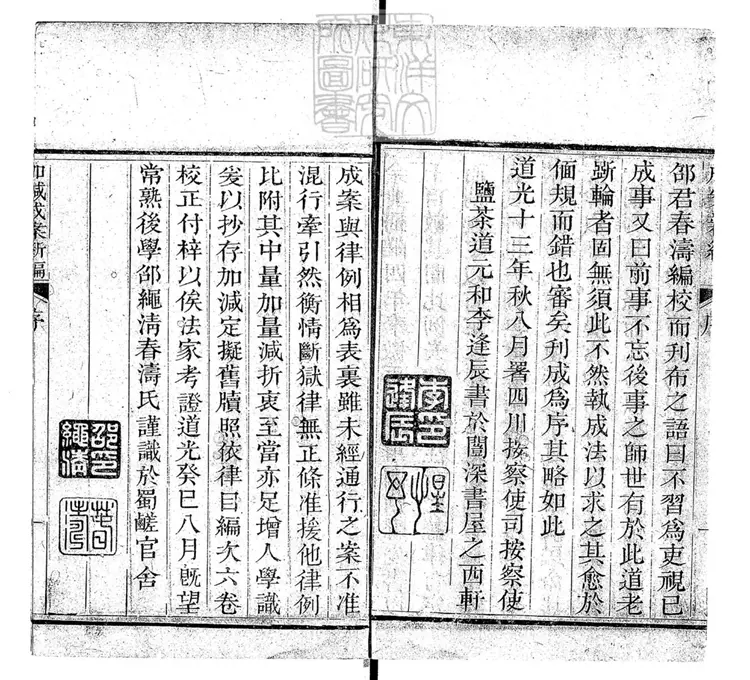 邵君春濤編校而刋布之語曰不習爲吏視已
成事又曰前事不忘後事之師世有於此道老
斲輪者固無須此不然執成法以求之其愈於
偭規而錯也審矣刋成爲序其略如此
道光十三年秋八月署四川按察使司按察使
鹽茶道元和李逢辰書於闇深書屋之西軒
成案與律例相爲表裏雖未經通行之案不准
混行牽引然衡情斷獄律無正條准援他律例
比附其中量加量減折衷至當亦足增人學識
爰以抄存加減定擬舊牘照依律目編次六卷
校正付梓以俟法家考證道光癸巳八月旣望
常熟後學邵繩淸春濤氏謹識於蜀鹺官舍
加減成案新編
序
東洋文化研究所圖書
李逢辰印
邵繩淸印